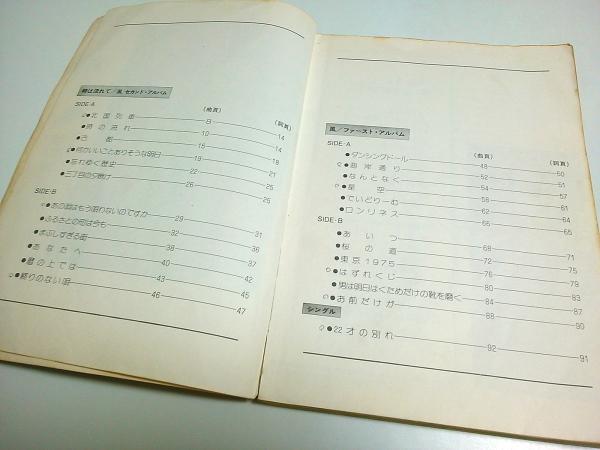 時は流れて/風 セカンド・アルバム
(曲頁) (詞頁)
SIDE-A
●北国列車 8 14
●時の流れ 10 14
●古都 15 18
●何かいいことありそうな明日 19 21
●忘れゆく歴史 22 25
●三丁目の夕焼け 26 25
SIDE-B
●あの唄はもう唄わないのですか 29 31
●ふるさとの町は今も 32 36
●まぶしすぎる街 33 37
●あなたへ 38 42
●暦の上では 40 45
●終りのない唄 43 47
46
風/ファースト・アルバム
(曲頁) (詞頁)
SIDE-A
●ダンシングドール 48 50
●海岸通り 52 51
●なんとなく 54 57
●星空 58 61
●でいどりーむ 62 64
●ロンリネス 66 65
SIDE-B
●あいつ 68 71
●桜の道 72 75
●東京1975 76 79
●はずれくじ 80 83
●男は明日はくためだけの靴を磨く 84 87
●お前だけが 88 90
シングル
●22才の別れ 92 91